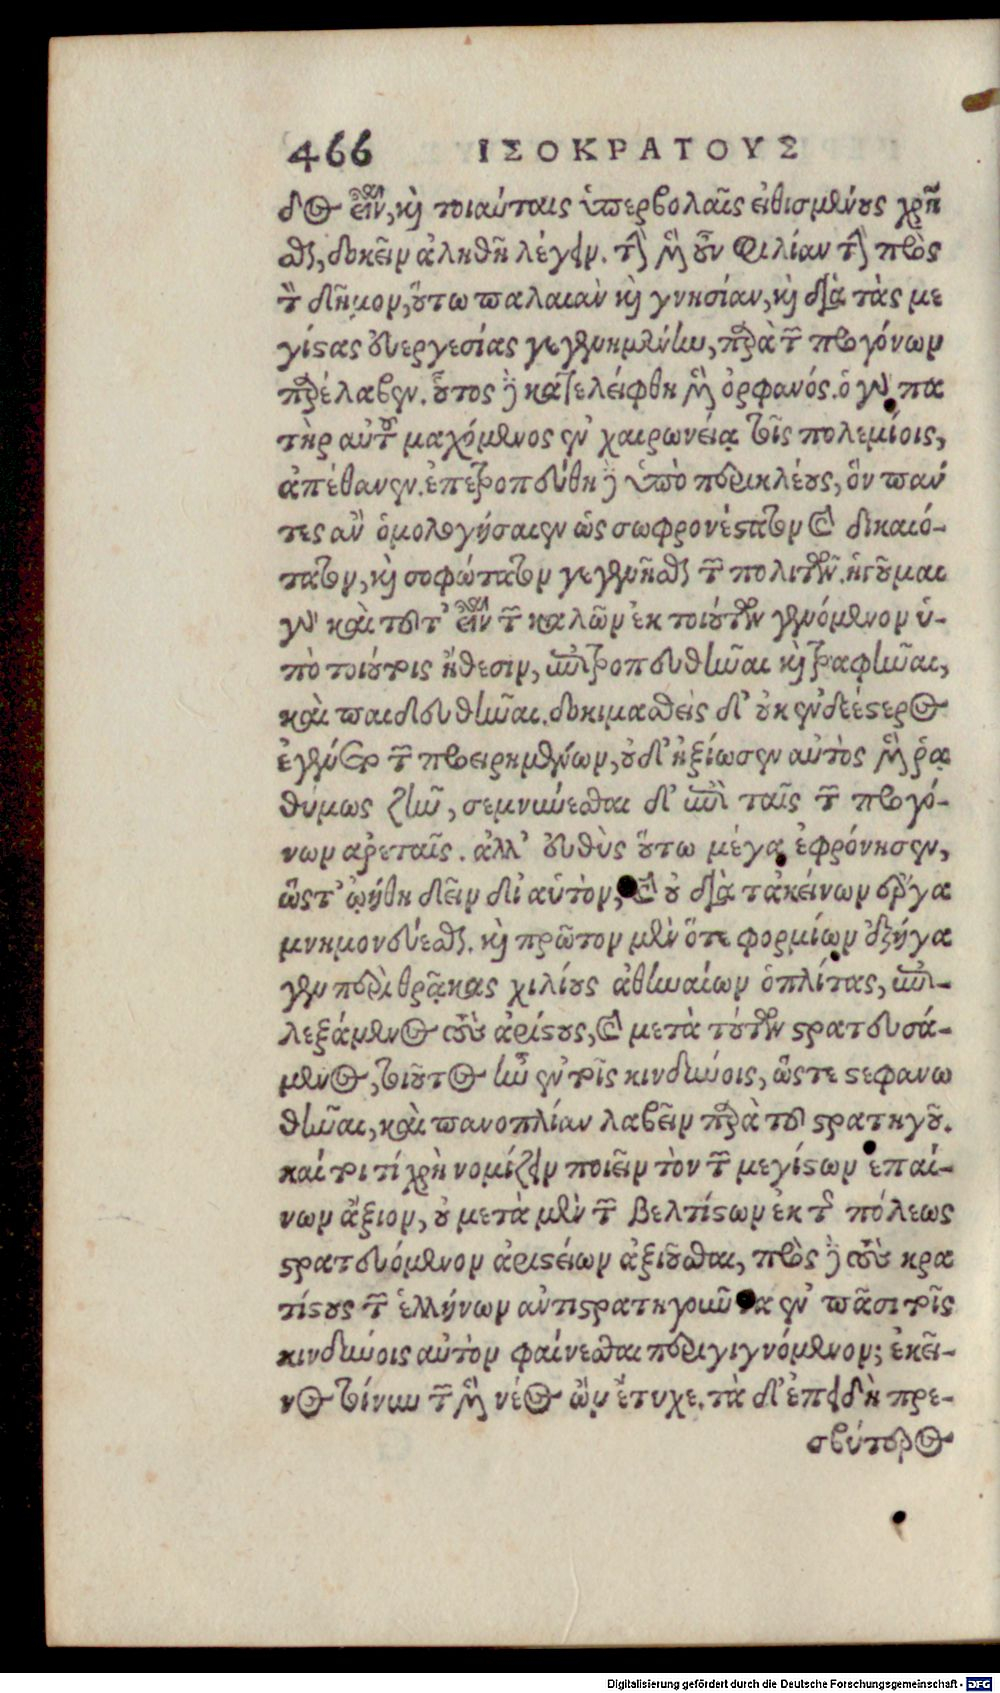 466 ΙΣΟΚΡΑΤΟΥΣ
δος εἶναι, καὶ τοιαύταις ὑπερβολαῖς εἰθισμένους χρῆ
σθαι, δοκεῖν ἀληθῆ λέγειν. τὴν μὲν οὖν φιλίαν τὴν πρὸς
τὸν δῆμον, οὕτω παλαιὰν καὶ γνησίαν, καὶ διὰ τὰς με
γίστας εὐεργεσίας γεγενημένην, παρὰ τῶν προγόνων
παρέλαβεν. οὗτος δὲ κατελείφθη μὲν ὀρφανός. ὁ γὰρ πα
τὴρ αὐτοῦ μαχόμενος ἐν χαιρωνείᾳ τοῖς πολεμίοις,
ἀπέθανεν. ἐπετροπεύθη δὲ ὑπὸ περικλέους, ὃν πάν
τες ἂν ὁμολογήσαιεν ὡς σωφρονέστατον καὶ δικαιό-
τατον, καὶ σοφώτατον γεγενῆσθαι τῶν πολιτῶν. ἡγοῦμαι
γὰρ καὶ τοῦτ' εἶναι τῶν καλῶν ἐκ τοιούτων γενόμενον ὑ-
πὸ τοιούτοις ἤθεσιν, ἐπιτροπευθῆναι καὶ τραφῆναι,
καὶ παιδευθῆναι. δοκιμασθεὶς δ' οὐκ ἐνδεέστερος
ἐγένετο τῶν προειρημένων, οὐδ' ἠξίωσεν αὐτὸς μὲν ῥᾳ
θύμως ζῆν, σεμνύνεσθαι δ' ἐπὶ ταῖς τῶν προγό-
νων ἀρεταῖς. ἀλλ' εὐθὺς οὕτω μέγα ἐφρόνησεν,
ὥστ' ᾠήθη δεῖν δι' αὑτὸν, καὶ οὐ διὰ τἀκείνων ἔργα
μνημονεύεσθαι. καὶ πρῶτον μὲν ὅτε φορμίων ἐξήγα
γεν περὶ θρᾴκας χιλίους ἀθηναίων ὁπλίτας, ἐπι-
λεξάμενος τοὺς ἀρίστους, καὶ μετὰ τούτων στρατευσά-
μενος, τοιοῦτος ἦν ἐν τοῖς κινδύνοις, ὥστε στεφανω
θῆναι, καὶ πανοπλίαν λαβεῖν παρὰ τοῦ στρατηγοῦ.
καί τοι τί χρὴ νομίζειν ποιεῖν τὸν τῶν μεγίστων ἐπαί-
νων ἄξιον, οὐ μετὰ μὲν τῶν βελτίστων ἐκ τῆς πόλεως
στρατευόμενον ἀριστείων ἀξιοῦσθαι, πρὸς δὲ τοὺς κρα
τίστους τῶν ἑλλήνων ἀντιστρατηγοῦντα ἐν πᾶσι τοῖς
κινδύνοις αὐτὸν φαίνεσθαι περιγιγνόμενον; ἐκεῖ-
νος τοίνυν τῶν μὲν νέος ὢν ἔτυχε. τὰ δ' ἐπειδὴ πρε-
σβύτερος
Digitalisierung gefördert durch die Deutsche Forschungsgemeinschaft - DFG